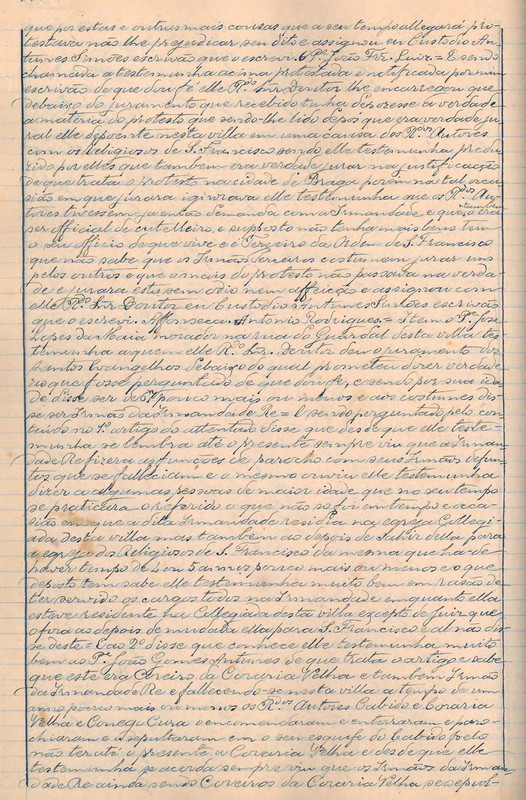 que por estas e outras mais cousas que a seu tempo allegará pro-
testava não lhe prejudicar seu dito e assignou eu Custodio An-
tunes Simões escrivão que o escrevi. Pe. João Frz. Luiz. = E sendo
chamada a testemunha acima protestada e notificada por mim
escrivão do que dou fé elle Ro. Snr. Doutor lhe encarregou que
debaixo do juramento que recebido tinha depozesse a verdade
a materia do protesto que sendo-lhe lido depoz que era verdade ju-
rar elle depoente nesta villa em uma causa dos Rdos Autores
com os religiosos de S. Francisco sendo elle testemunha produ-
zido por elles que tambem era verdade jurar na justificação
de que trata o protesto na cidade de Braga porém na tal occa-
sião em que jurara ignorava elle testemunha que os Rdos Au-
tores tivessem juentas demanda com a Irmandade e que o era
ser official de cutelleiro, e supposto não tenha mais bens tem
o seu officio de que vive e é Terceiro da Ordem de S. Francisco
que não sabe que os Irmãos Terceiros costumem jurar uns
pelos outros e que o mais do protesto não passava na verda-
de e jurara este sem odio nem affeição e assignou com
elle Ro. Snr. Doutor eu Custodio Antunes Simões escrivão
que o escrevi. Affonseca = Antonio Rodrigues. = Item o Pe. José
Lopes da Maia morador na rua do Guardal desta villa tes-
temunha a quem elle Ro. Snr. Doutor deu o juramento dos
Santos Evangelhos debaixo do qual prometeu dizer verdade
no que fosse perguntado de que dou fé, e sendo por sua ida-
de disse ser de 57 pouco mais ou menos e aos costumes dis-
se ser Irmão da Irmandade Re = E sendo perguntado pelo con-
teúdo no 1º artigo do attentado disse que desde que elle teste-
munha se lembra até o presente sempre viu que a Irman-
dade Re fizera as funções de parocho com seus Irmãos defun-
tos que se falleciam e o mesmo ouviu elle testemunha
dizer a algumas pessoas de maior idade que no seu tempo
se praticara o referido o que não só foi em tempo e occa-
sião em que a dita Irmandade residia na egreja Collegi-
ada desta villa mas tambem ao depois de sahir della para
a egreja dos Religiosos de S. Francisco da mesma que ha-de
haver tempo de 4 ou 5 annos pouco mais ou menos e o que
deposto tem sabe elle testemunha muito bem em rasão de
ter servido os cargos todos na Irmandade em quanto ella
esteve residente na Collegiada desta villa excepto de Juiz que
o fora ao depois de mudada ella para S. Francisco e al não dis-
se deste = E ao 2º disse que conhece elle testemunha muito
bem ao Pe. João Gomes Antunes de que trata o artigo e sabe
que este era Coreiro da Coraria Velha e tambem Irmão
da Irmandade Re e fallecendo-se nesta villa a tempo de um
anno pouco mais ou menos os Rdos Autores Cabido e Coraria
Velha e Conego Cura o encomendaram e enterraram e paro-
chiaram e sepultaram em o seu esquife do Cabido pelo
não ter até o presente a Coraria Velha e desde que elle
testemunha se acorda sempre viu que os Irmãos da Irman-
dade Re ainda sendo Coreiros da Coraria Velha se sepul-